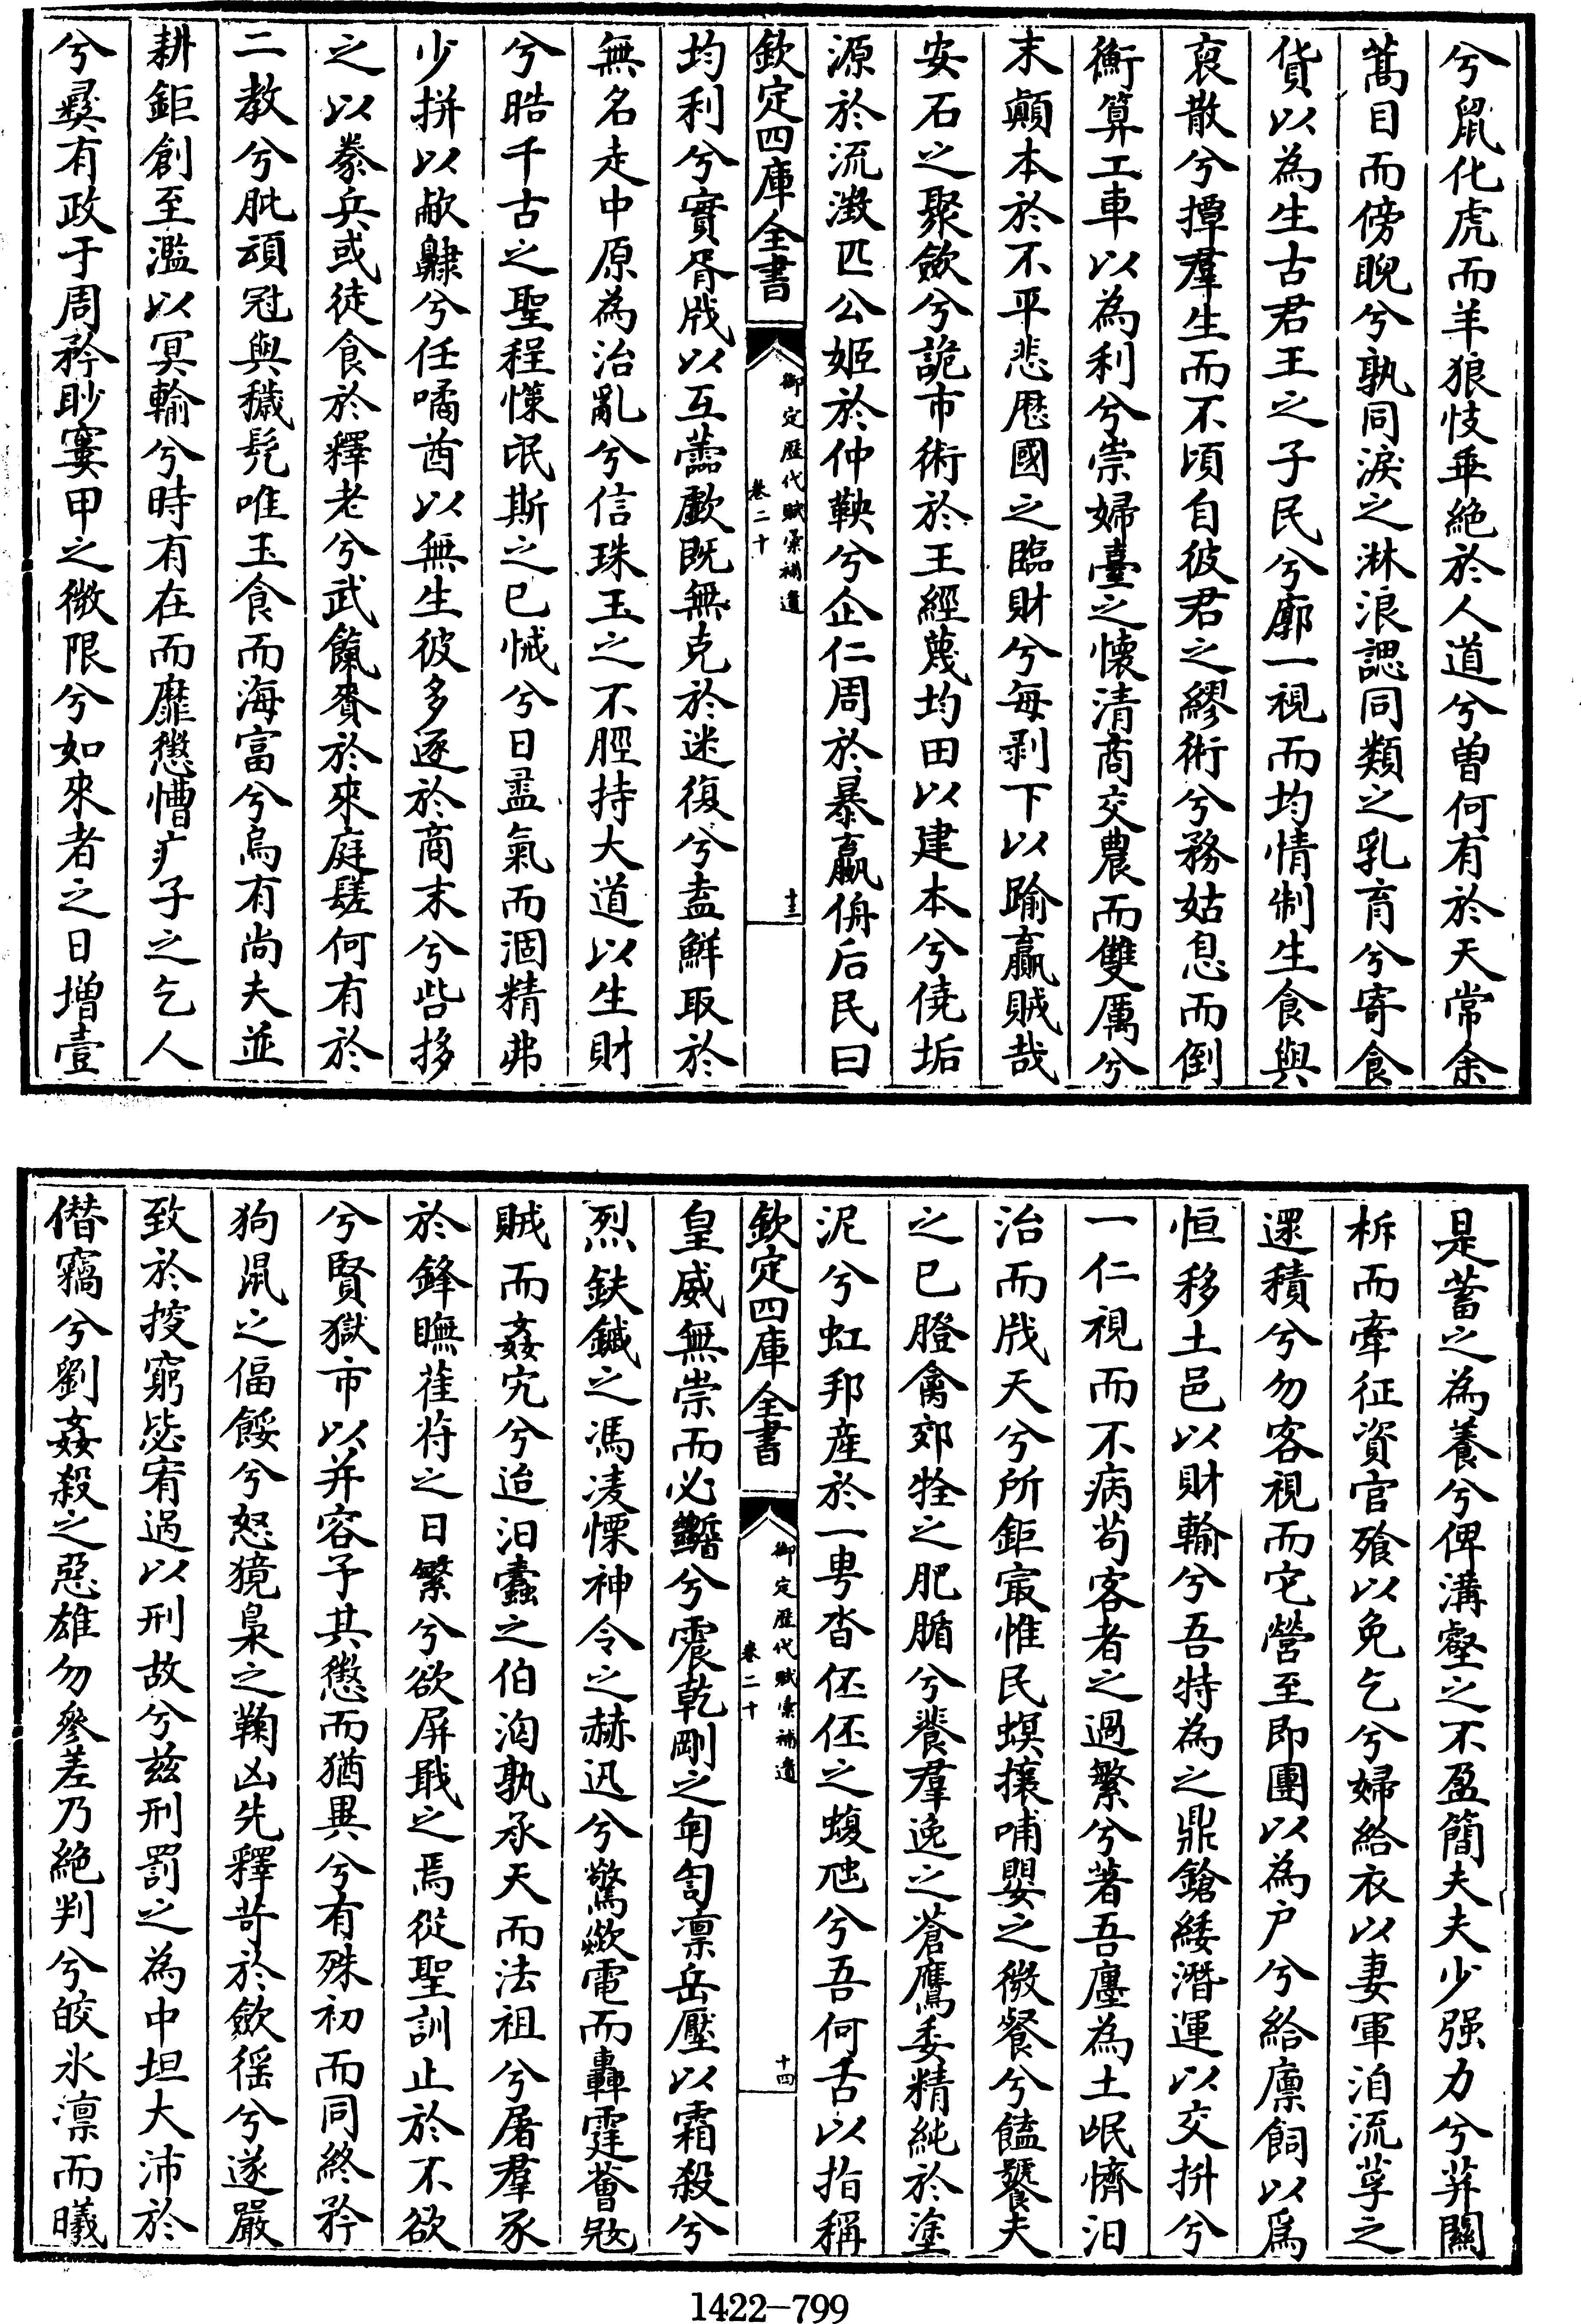 兮鼠化虎而羊狼忮垂絶於人道兮曽何有於天常余
蒿目而傍睨兮孰同淚之淋浪諰同類之乳育兮寄食
貨以為生古君王之子民兮廓一視而均情制生食與
裒散兮撢羣生而不頃自彼君之繆術兮務姑息而倒
衡算工車以為利兮崇婦臺之懷清商交農而雙厲兮
末顛本於不平悲歴國之臨財兮每剥下以踰贏賊哉
安石之聚歛兮詭市術於王經蔑均田以建本兮僥垢
源於流澂匹公姬於仲鞅兮企仁周於暴嬴侜后民曰
欽定四庫全書
御定歴代賦彚補遺
卷二十
十三
均利兮實胥戕以互虀歔既無克於迷復兮盍鮮取於
無名走中原為治亂兮信珠玉之不脛持大道以生財
兮晧千古之聖程慄氓斯之已慽兮日盡氣而涸精弗
少拼以㱃隸兮任噊酋以無生彼多逐於商末兮呰移
之以豢兵或徒食於釋老兮武餼賚於來庭嗟何有於
二教兮肶頑冠與穢髠唯玉食而海富兮烏有尚夫並
耕鉅創至濫以冥輸兮時有在而靡懲慒疒子之乞人
兮彛有政于周矜眇寠甲之微限兮如來者之日增壹
是蓄之為養兮俾溝壑之不盈簡夫夫少强力兮茾闗
柝而牽征資官飱以免乞兮婦給衣以妻軍洎流莩之
還積兮勿客視而宅營至即團以為户兮給廪飼以爲
恒移土邑以財輸兮吾特為之鼎鎗緌潛運以交拼兮
一仁視而不病苟客者之過繁兮著吾廛為土岷懠汨
治而戕天兮所鉅㝡惟民螟攘哺嬰之微餐兮饁饕夫
之已膯禽郊牷之肥腯兮餥羣逸之蒼鷹委精純於塗
泥兮虹邦産於一甹沓伾伾之蝮虺兮吾何舌以指稱
欽定四庫全書
御定歴代賦彚補遺
卷二十
十四
皇威無崇而必讋兮震乾剛之匉訇凛岳壓以霜殺兮
烈鈇鉞之馮凌慄神令之赫迅兮驚歘電而轟霆薈敓
賊而姦宄兮迨汩蠧之伯洶孰承天而法祖兮屠羣豕
於鋒瞴萑苻之日繁兮欲屏戢之焉從聖訓止於不欲
兮賢獄市以并容予其懲而猶異兮有殊初而同終矜
狗䑕之偪餒兮怒獍梟之鞠凶先釋苛於歛徭兮遂嚴
致於挍窮毖宥過以刑故兮兹刑罰之為中坦大沛於
僣竊兮劉姦殺之惡雄勿參差乃絶判兮皎氷凛而曦
1422-799